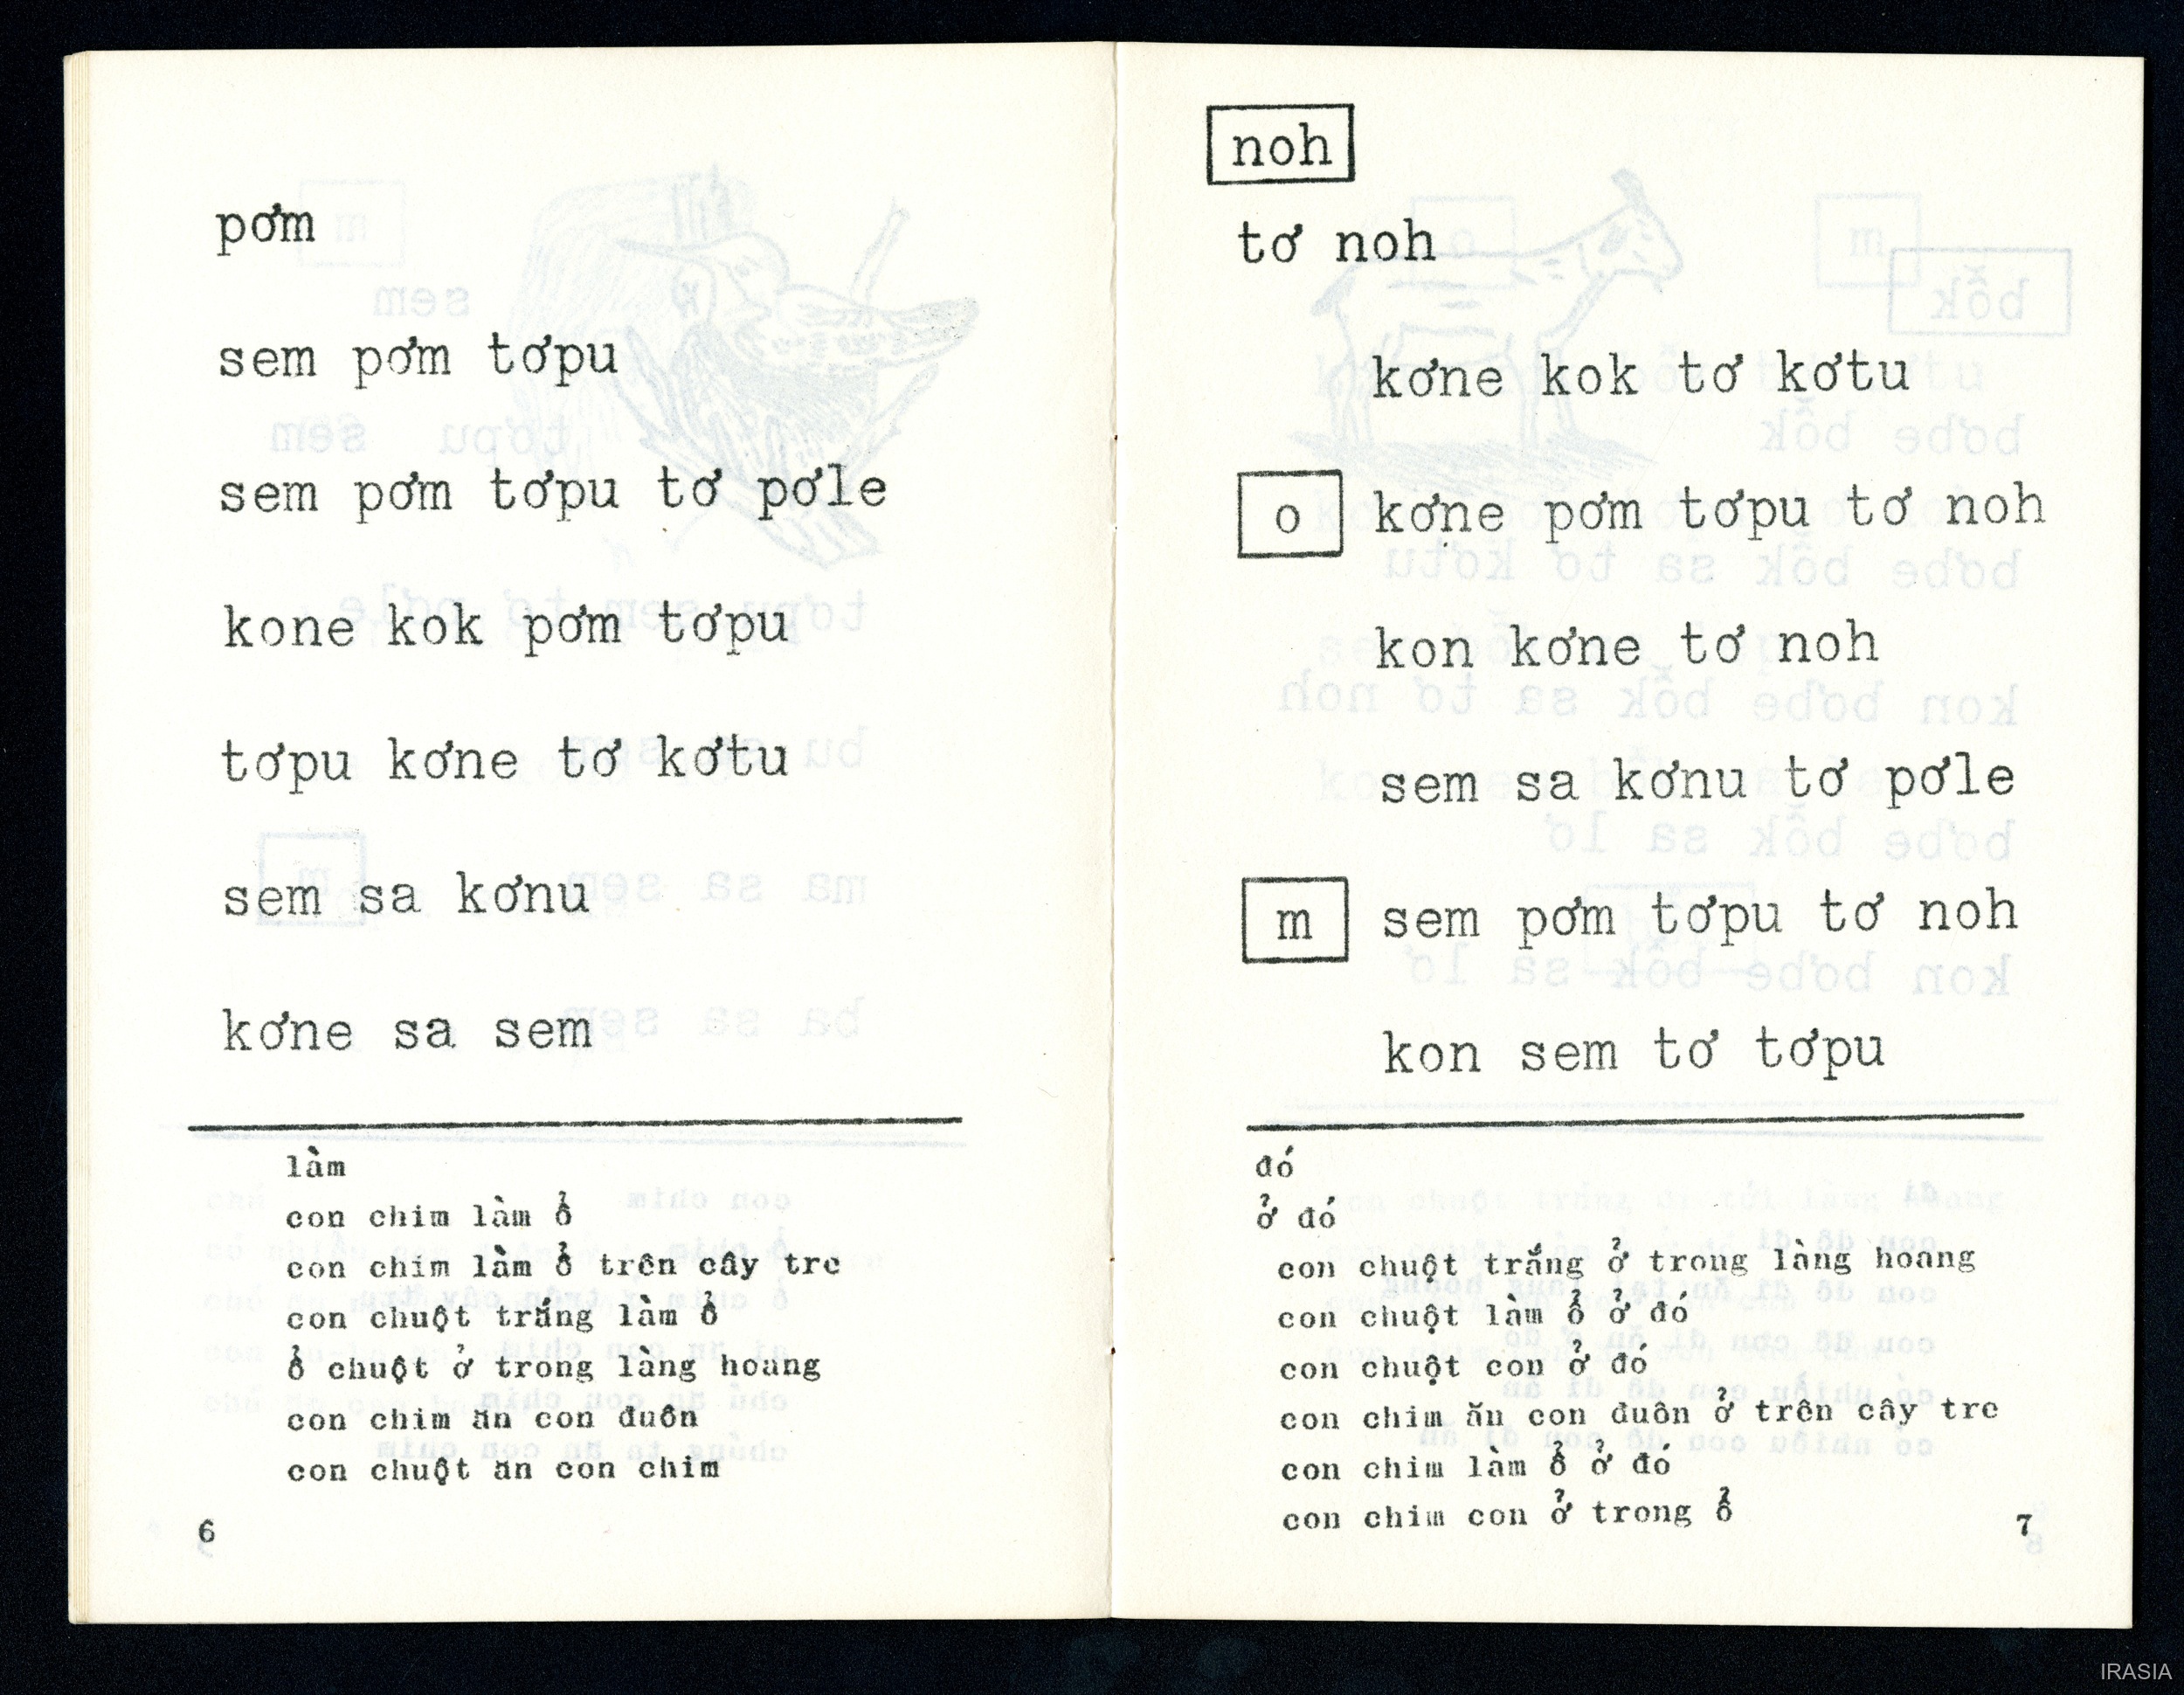 pơm
sem pơm tơpu
sem pơm tơpu tơ pơle
kone kok pơm tơpu
tơpu kơne tơ kơtu
sem sa kơnu
kơne sa sem
làm
con chim làm ổ
con chim làm ổ trên cây tre
con chuột trắng làm ổ
ổ chuột ở trong làng hoang
con chim ăn con đuôn
con chuột ăn con chim
6
noh
tơ noh
kơne kok tơ kơtu
o kơne pơm tơpu tơ noh
kon kơne tơ noh
sem sa kơnu tơ pơle
m sem pơm tơpu tơ noh
kon sem tơ tơpu
đó
ở đó
con chuột trắng ở trong làng hoang
con chuột làm ổ ở đó
con chuột con ở đó
con chim ăn con đuôn ở trên cây tre
con chim làm ổ ở đó
con chim con ở trong ổ
7
IRASIA